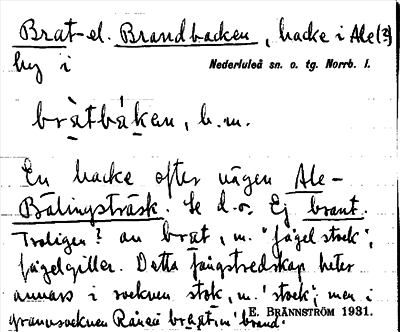 Brat- el. Brandbacken, backe i Ale (?)
by i Nederluleå sn. o. tg. Norrb. l.
bràtbáken, b.m.
En backe efter vägen Ale-
Bälingsträsk. Se d.o. Ej brant.
Troligen? av brat, m. "fågelstock",
fågelgiller. Detta fångstredskap heter
annars i socknen stok, m. 'stock'; men i
grannsocknen Råneå brat, m. 'brand'.
E. BRÄNNSTRÖM 1931.